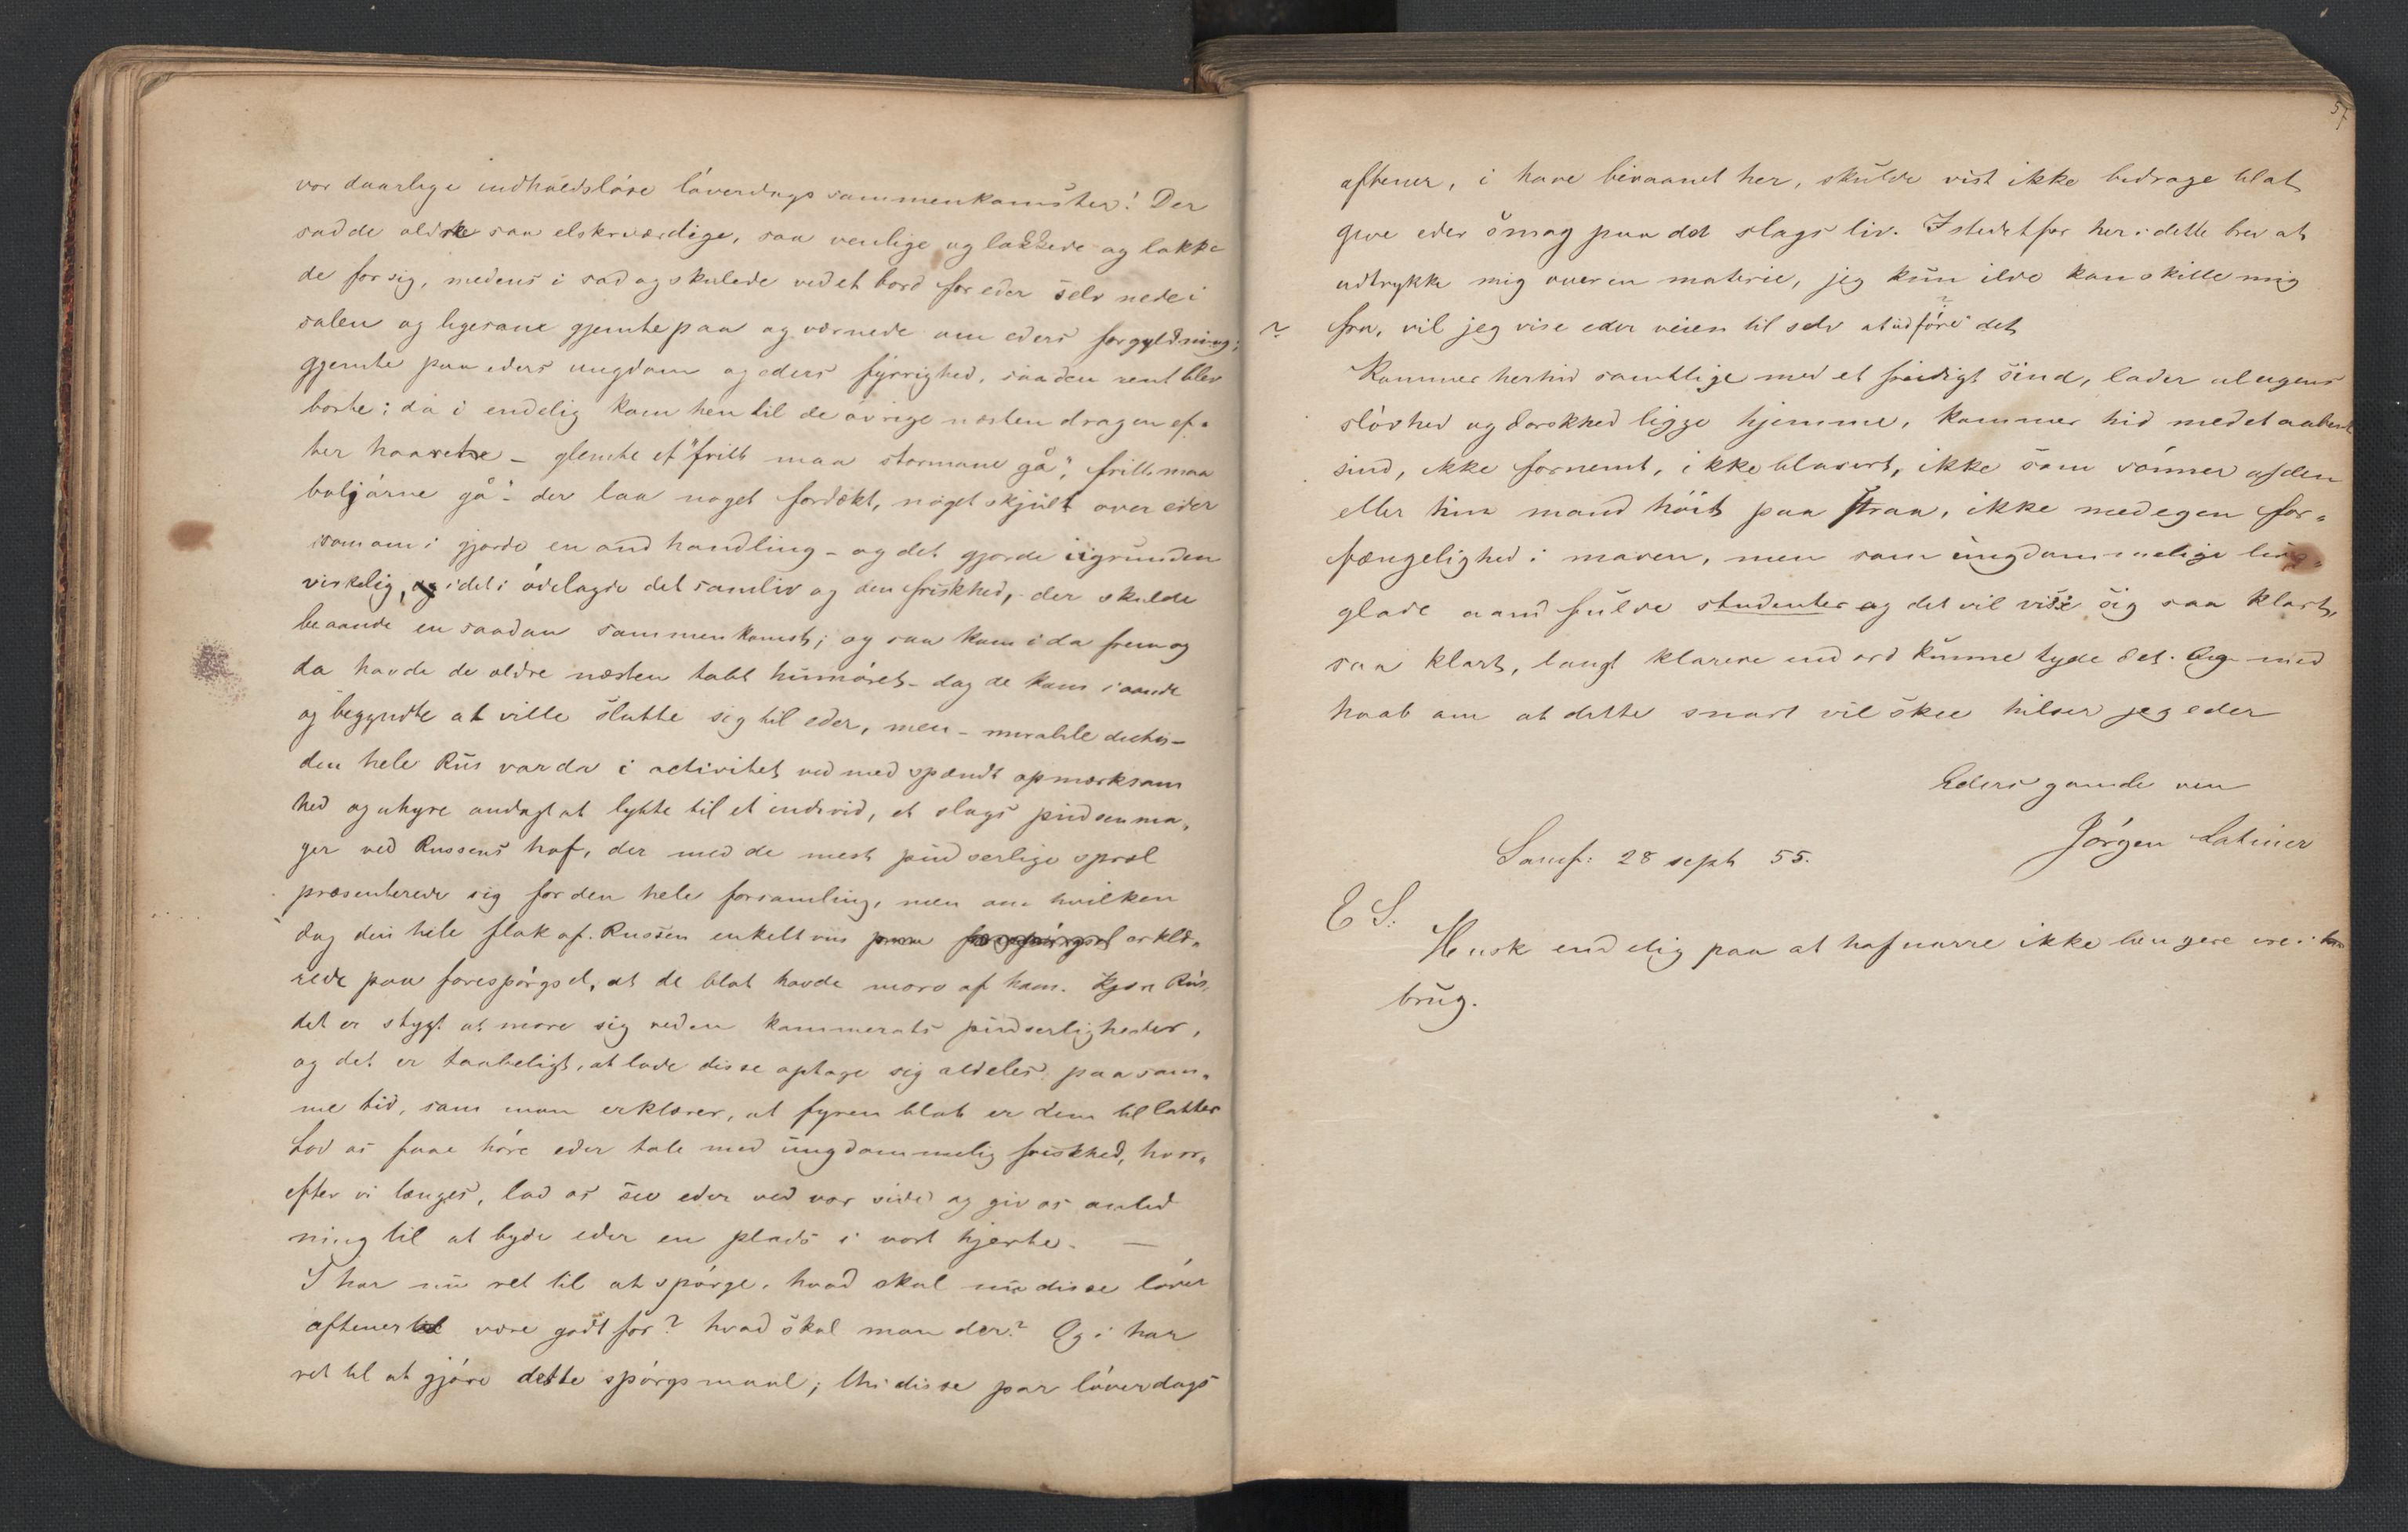 vor daarlige indholdsløse løverdags sammenkomster! Der
sad de ældre saa elskværdige, saa venlige og lokkede og lokke
de for sig, medens i sad og skulede ved et bord for eder selv nede i
salen og ligesom gjemte paa og værnede om eders forgyldning;
gjemte paa eders ungdom og eders fyrrighed, saa den rent blev
borte; da i endelig kom hen til de øvrige næsten dragen ef-
ter haarene – glemte et "frilt maa stormene gå", frilt maa
bølgerne gå" – der laa noget fordækt, noget skjult over eder
som om i gjorde en ond handling – og det gjorde i igrunden
virkelig, idet i ødelagde det samliv og den friskhed, der skulde
beaande en saadan sammenkomst; og saa kom i da frem og
da havde de ældre næsten tabt humøret – dog de kom i aande
og begyndte at ville slutte sig til eder, men – mirabile dictu –
den hele Rus var da i activitet ved med spændt opmærksom
hed og uhyre andagt at lytte til et individ, et slags pudsenma-
ger ved Russens hof, der med de mest pudserlige spræl
præsenterede sig for den hele forsamling, men om hvilken
dog den hele flok af Russen enkeltviis erklæ-
rede paa forespørgsel, at de blot havde moro af ham. Kjære Rus,
det er stygt at more sig ved en kammerats pudserligheder,
og det er taabeligt, at lade disse optage sig aldeles paa sam-
me tid, som man erklærer, at fyren blot er dem til latter
Lad os faae høre eder tale med ungdommelig friskhed, hvor-
efter vi længes, lad os see eder ved vor side og giv os anled
ning til at byde eder en plads i vort hjerte. —
I har nu ret til at spørge, hvad skal nu disse løver
aftener være godt for? hvad skal man der? Og i har
ret til at gjøre dette spørgsmaal; thi disse par løverdags
57
aftener, i have bivaanet her, skulde vist ikke bidrage til at
give eder smag paa det slags liv. Istedetfor her i dette brev at
udtrykke mig over en materie, jeg kun ilde kan skille mig
? fra, vil jeg vise eder veien til selv at udføre det
Kommer herhid samtlige med et freidigt sind, lader al egens
sløvhed og dorskhed ligge hjemme, kommer hid med et aabent
sind, ikke fornemt, ikke blasert, ikke som sønner af den
eller hin mand høit paa straa, ikke med egen for-
fængelighed i maven, men som ungdommelige livs-
glade aandfulde studenter og det vil vise sig saa klart,
saa klart, langt klarere end ord kunne tyde det. Og med
haab om at dette snart vil skee hilser jeg eder
Eders gamle ven
Jørgen Latiner
Samf: 28 sept 55.
E S:
Husk endelig paa at hofnarre ikke længere ere i
brug.